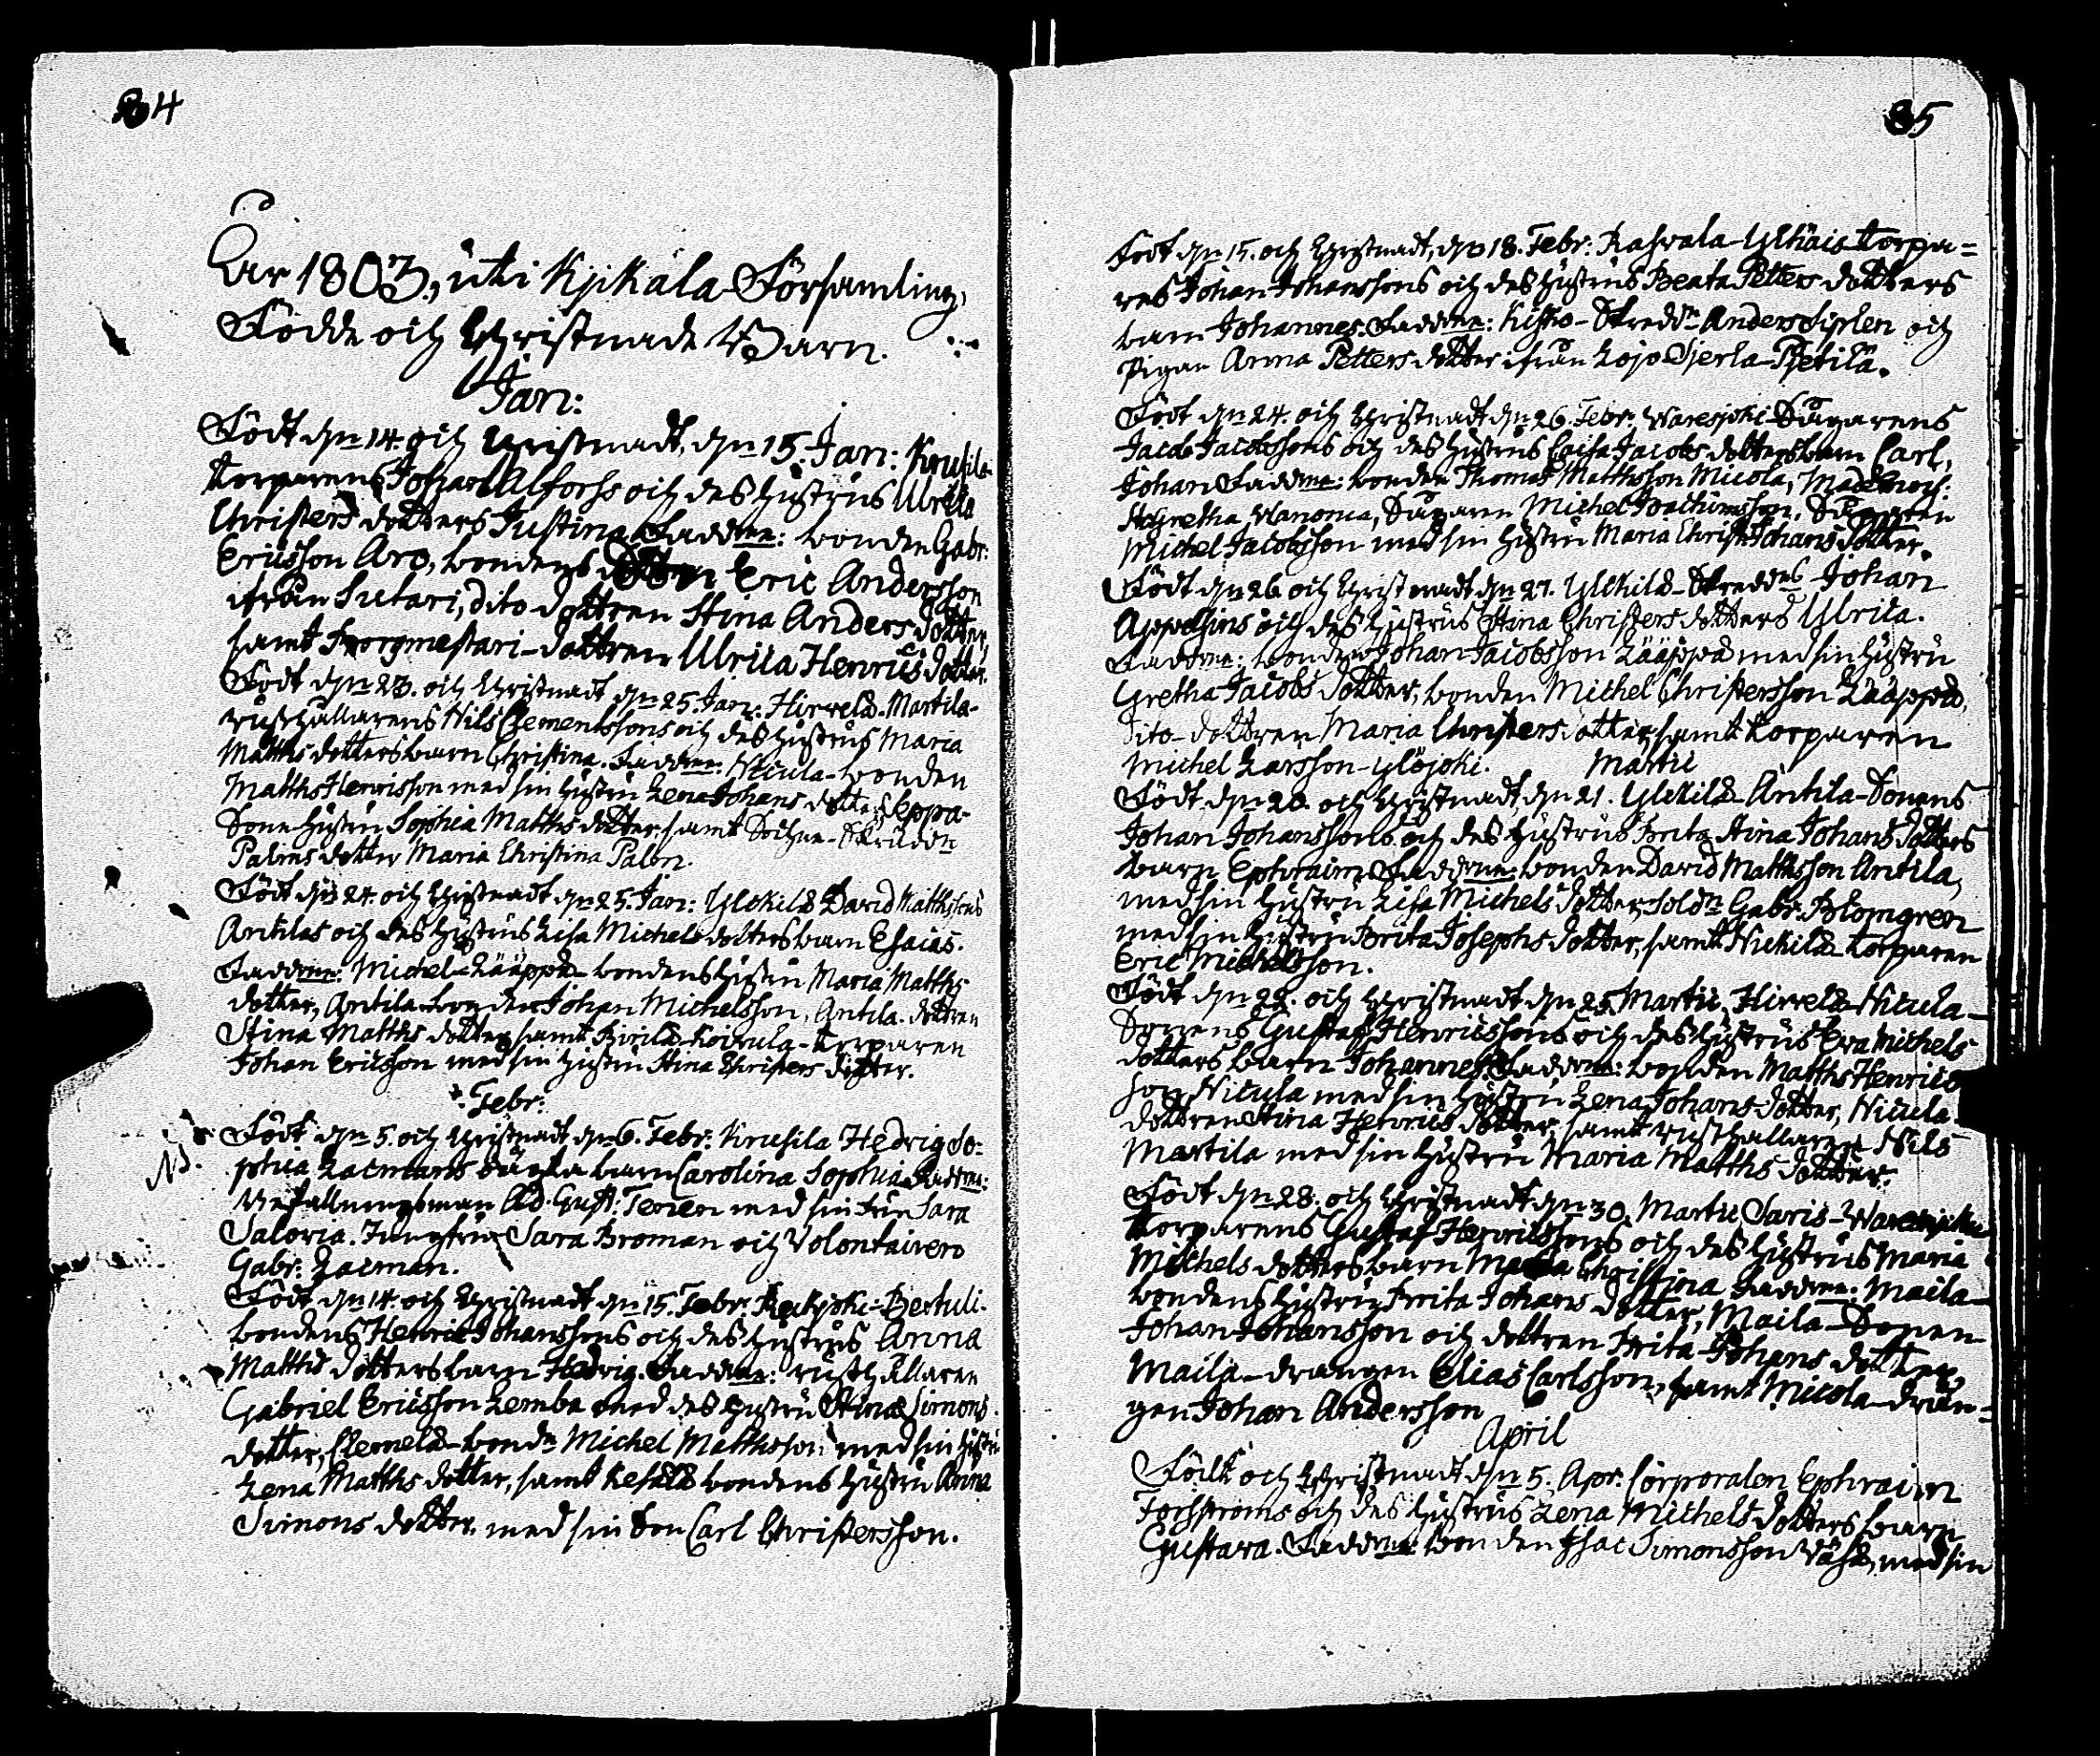 84
Åhr 1803, uti Kjikala Församling,
Födde och Christnade Barn.
Jan:
Födt dn 14. och Christnadt, dn 15. Jan: Krusila
torparens Johan Alforss och des hustrus Ulrica
Christers dotters Justina. Faddrne: bonden Gabr:
Ericsson Aro, bondens Eric Andersson
ifrån Sutari, dito dottren Stina Anders dotter,
samt Borgmestari-dottren Ulrica Henrics dotter.
Födt dn 23. och Christnadt dn 25. Jan: Hirvelä-Martila-
rusthållarens Nils Clementssons och des hustrus Maria
Matths dotters barn Christina. Faddrne: Nicula-bonden
Matths Henricsson med sin hustru Lena Johans dotter, Leppä-
Sone hustru Sophia Matths dotter, samt Sockne-Skräddn
Palms dotter Maria Christina Palm.
Födt dn 24. och Christnadt dn 25. Jan: Ylikilä David Matthssons
Antilas och des hustrus Lisa Michels dotters barn Esaias.
Faddrne: Michel-Lääppä bondens hustru Maria Matths
dotter, Antila bonden Johan Michelsson, Antila dottren
Stina Matths dotter, samt Pirilä-Koivula-torparen
Johan Ericsson med sin hustru Stina Christers dotter.
Febr:
Födt dn 5. och Christnadt dn 6. Febr: Krusila Hedvig So-
phia Lacmans oäkta barn Carolina Sophia. Faddrne:
Befallningsman Ad. Gust. Teren med sin Fru Sara
Saloria. Jungfru Sara Broman och Volontairen
Gabr: Lacman.
NB.
Födt dn 14. och Christnadt dn 15. Febr. Rekijoki-Bertuli-
bondens Henric Johanssons och des hustrus Anna
Matths dotters barn Hedvig. Faddrne: rusthållaren
Gabriel Ericsson Lemba med des hustru Stina Simons
dotter, Clemelä-bondn Michel Matthsson med sin hustru
Lena Matths dotter, samt Kesälä bondens hustru Anna
Simons dotter, med sin son Carl Christersson.
85
Födt dn 15. och Christnadt, dn 18. Febr: Rasvala-Ylhäis torpa=
res Johan Johanssons och des hustrus Beata Petters dotters
barn Johannes. Faddrne: Kisko-Skreddn Anders Siplen och
Pigan Anna Petters dotter ifrån Lojo Sjerla-Pietilä.
Födt dn 24. och Christnadt dn 26. Febr: Waresjoki Sågarens
Jacob Jacobssons och des hustrus Caisa Jacobs dotters barn Carl,
Johan. Faddrne: bonden Thomas Matthsson Micola, Mademois:
Gretha Wanoma, Sågaren Michel Joachimsson, Sågaren
Michel Jacobsson med sin hustru Maria Christ. Johans dotter.
Födt dn 26. och Christnadt dn 27. Ylikilä-Skreddns Johan
Appelgins och des hustrus Stina Christers dotters Ulrica.
Faddrne: bonden Johan Jacobsson Lääppä med sin hustru
Gretha Jacobs dotter, bonden Michel Christersson Lääppä,
dito-dottren Maria Christers dotter, samt torparen
Michel Larsson-Ylöjoki.
Martii
Födt dn 20. och Christnadt dn 21. Ylikilä-Antila-Sonens
Johan Johanssons och des hustrus Brita Stina Johans dotters
barn Ephraim. Faddrne: bonden David Matthsson Antila,
med sin hustru Lisa Michels dotter, soldn Gabr. Blomgren
med sin hustru Brita Josephs dotter, samt Nickilä torparen
Eric Michelsson.
Födt dn 22. och Christnadt dn 25. Martii, Hirvelä-Nicula-
Sonens Gustaf Henricssons och des hustrus Eva Michels
dotters barn Johannes. Faddrne: bonden Matths Henrics
son Nicula med sin hustru Lena Johans dotter, Nicula-
dottren Stina Henrics dotter, samt rusthållaren Nils
Martila med sin hustru Maria Matths dotter.
Födt dn 28. och Christnadt dn 30. Martii, Saris-Waresjoki
torparens Gustaf Henricssons och des hustrus Maria
Michels dotters barn Maria Christina. Faddrne: Maila-
bondens hustru Brita Johans dotter, Maila-Sonen
Johan Johansson och dottren Brita Johans dotter,
Maila-drängen Elias Carlsson, samt Micola-drän=
gen Johan Andersson
April
Födt och Christnadt dn 5. Apr. Corporalen Ephraim
Forsströms och des hustrus Lena Michels dotters barn
Gustava. Faddrne: bonden Isac Simonsson Väsä, med sin